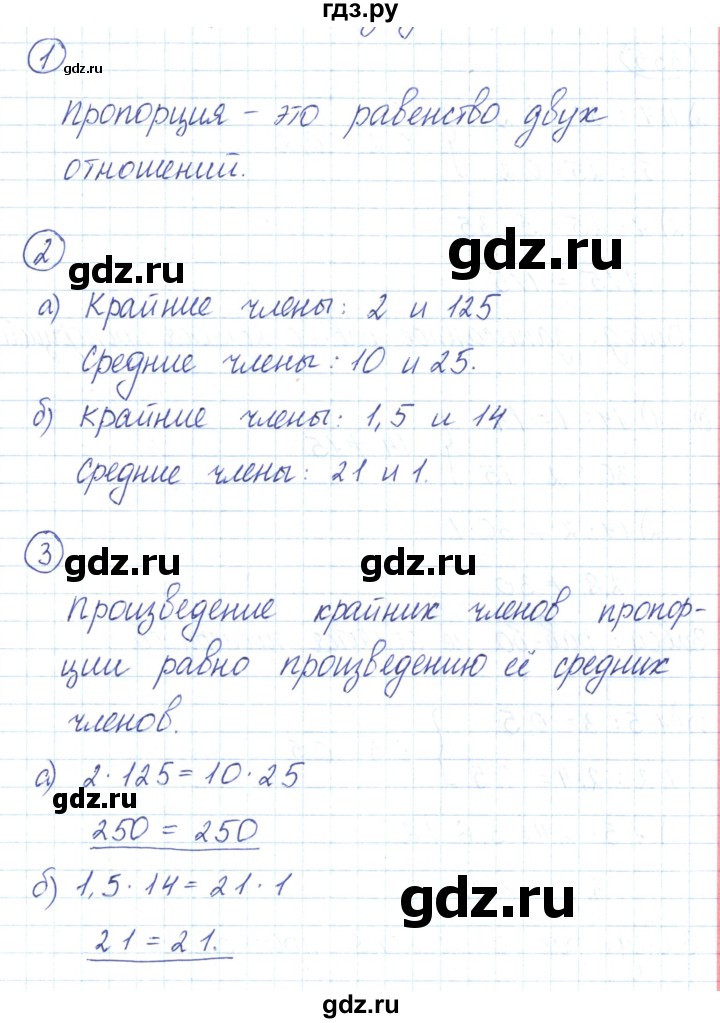 гдз.ру
1
gdz.ru
Пропорция - это равенство двух
отношений.
2
gdz.ru
gdz.ru
а) Крайние члены: 2 и 125
Средние члены: 10 и 25.
б) Крайние члены: 1,5 и 14
Средние члены: 21 и 1.
3
gdz.ru
gdz.ru
Произведение крайних членов пропор-
ции равно произведению её средних
членов.
а) 2 · 125 = 10 · 25
gdz.ru
250 = 250
б) 1,5 · 14 = 21 · 1
gdz.ru
21 = 21.
gdz.ru